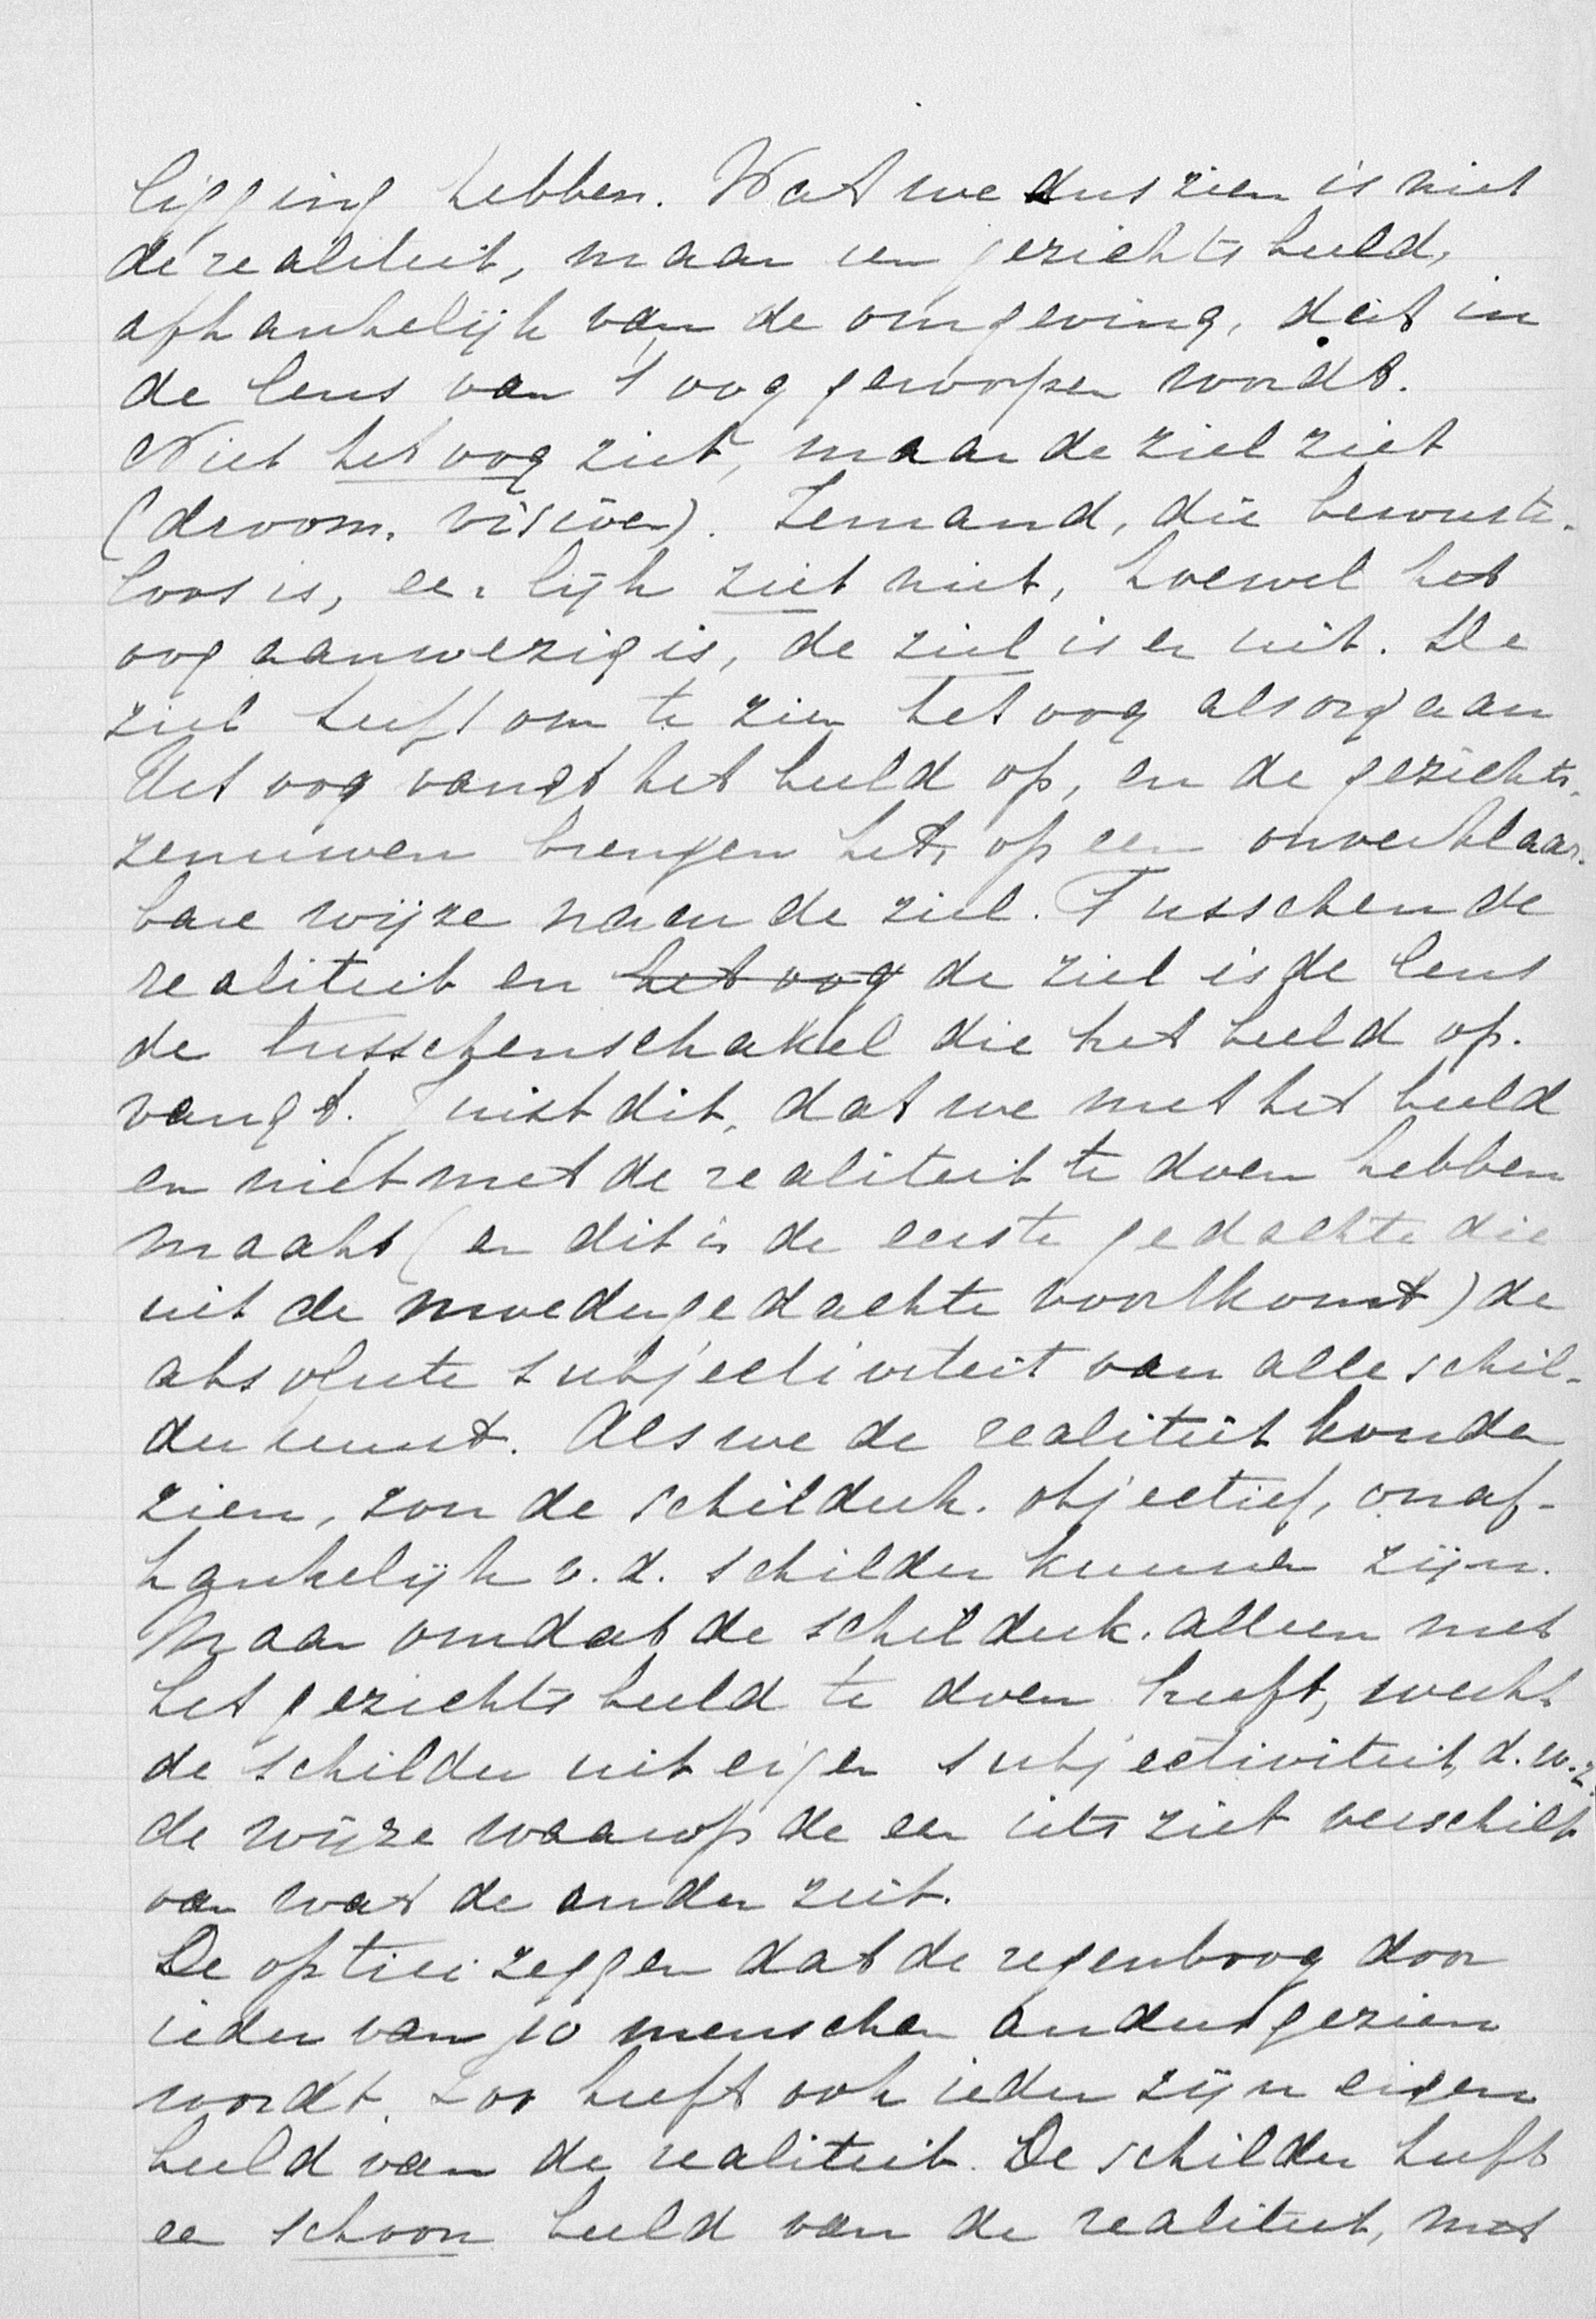 ligging hebben. Wat we dus zien is niet
de realiteit, maar een gezichtsbeeld,
afhankelijk van de omgeving, dat in
de lens van 't oog geworpen wordt.
Niet het oog ziet, maar de ziel ziet
(droom, visioen). Iemand, die bewuste-
loos is, een lijk ziet niet, hoewel het
oog aanwezig is, de ziel is er uit. De
ziel heeft om te zien het oog als orgaan
Het oog vangt het beeld op, en de gezichts-
zenuwen brengen het, op een onverklaar-
bare wijze naar de ziel. Tusschen de
realiteit en het oog de ziel is de lens
de tusschenschakel die het beeld op-
vangt. Juist dit, dat we met het beeld
en niet met de realiteit te doen hebben
maakt (en dit is de eerste gedachte die
uit de moedergedachte voortkomt) de
absolute subjectiviteit van alle schil-
derkunst. Als we de realiteit konden
zien, zou de schilderk. objectief, onaf-
hankelijk v.d. schilder kunnen zijn.
Maar omdat de schilderk. alleen met
het gezichtsbeeld te doen heeft, werkt
de schilder uit eigen subjectiviteit, d.w.z.
de wijze waarop de een iets ziet verschilt
van wat de ander ziet.
De optici zeggen dat de regenboog door
ieder van 10 menschen anders gezien
wordt. Zoo heeft ook ieder zijn eigen
beeld van de realiteit. De schilder heeft
een schoon beeld van de realiteit, met